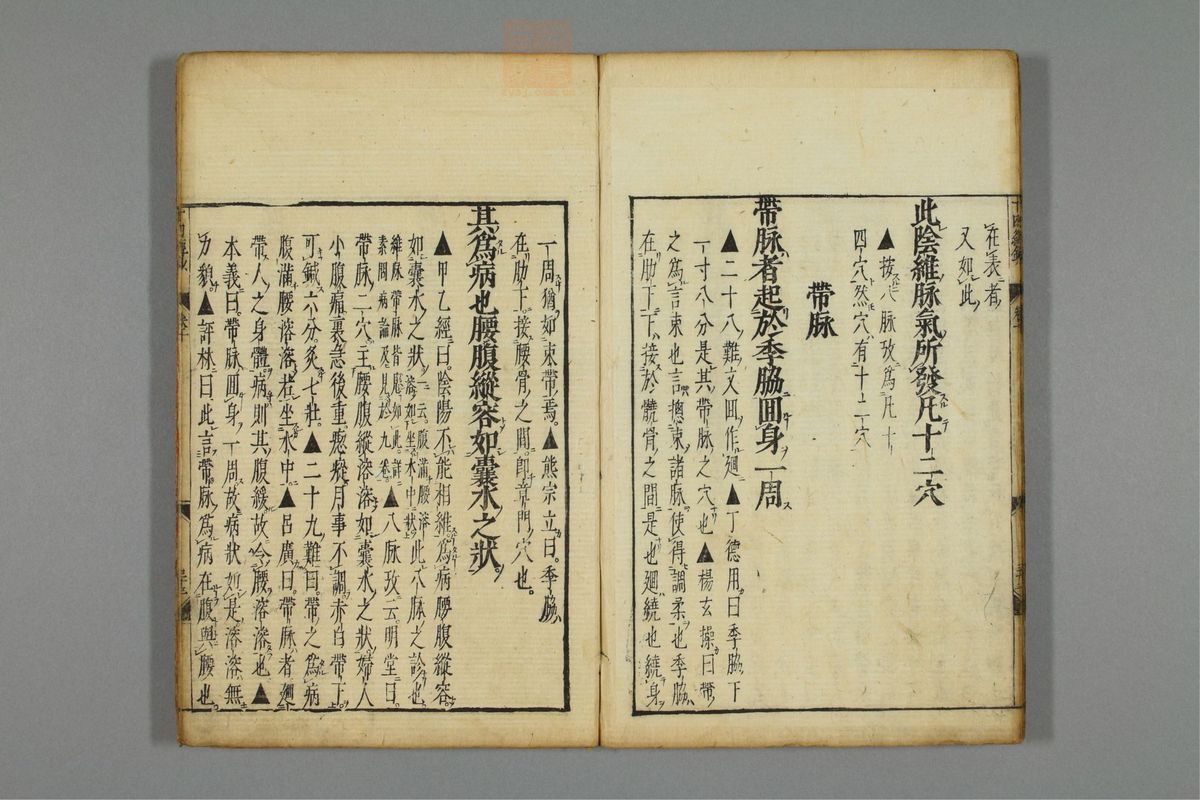 在表者
又如此
此陰維脉氣所發凡十二穴
▲按八脉攷爲凡十
四穴然穴有十二穴
帶脉
帶脉者起於季脇囬身一周
▲二十八難文囬作廻▲丁德用曰季脇下
一寸八分是其帶脉之穴也▲楊玄操曰帶
之爲言束也言摠束諸脉使得調柔也季脇
在肋下下接於髖骨之間是也廻繞也繞身
一周猶如束帶焉▲熊宗立曰季脇
在肋下接腰骨之間即章門穴也
其爲病也腰腹縱容如囊水之狀
▲甲乙經曰陰陽不能相維爲病腰腹縱容
如囊水之狀一云腹滿腰溶溶如坐水中狀此八脉之診也
維脉帶脉皆如此詳素問病論及見於九卷▲八脉攷云明堂曰
帶脉二穴主腰腹縱溶溶如囊水之狀婦人
小腹痛裏急後重瘛瘲月事不調赤白帶下
可鍼六分灸七壯▲二十九難曰帶之爲病
腹滿腰溶溶若坐水中▲呂廣曰帶脉者廻
帶人之身體病則其腹緩故令腰溶溶也▲
本義曰帶脉囬身一周故病狀如是溶溶無
力貌▲評林曰此言帶脉爲病在腹與腰也